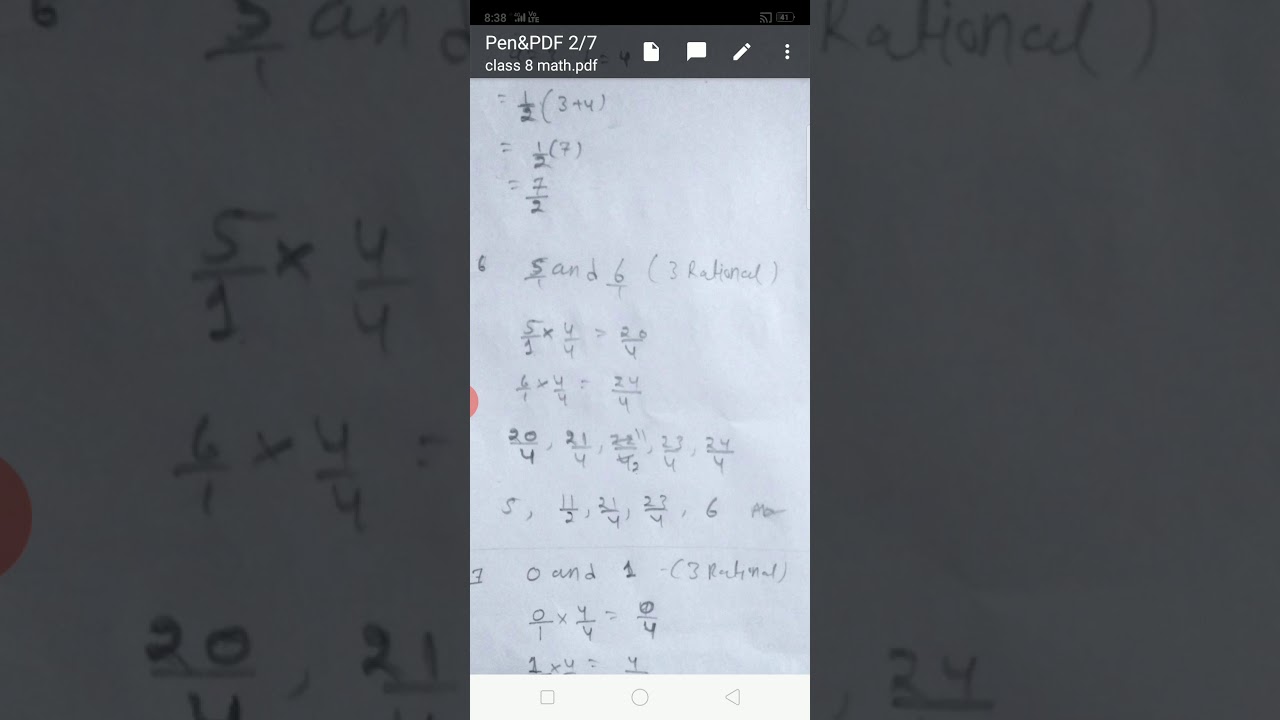 8:38 4G Vo LTE 41
Pen&PDF 2/7
class 8 math.pdf
= 4
= 1/2 (3+4)
= 1/2 (7)
= 7/2
6 5/1 and 6/1 (3 Rational)
5/1 × 4/4 = 20/4
6/1 × 4/4 = 24/4
20/4, 21/4, 22/4 11/2, 23/4, 24/4
5, 11/2, 21/4, 23/4, 6
7 0 and 1 -(3 Rational)
0/1 × 4/4 = 0/4
1 × 4 = 4